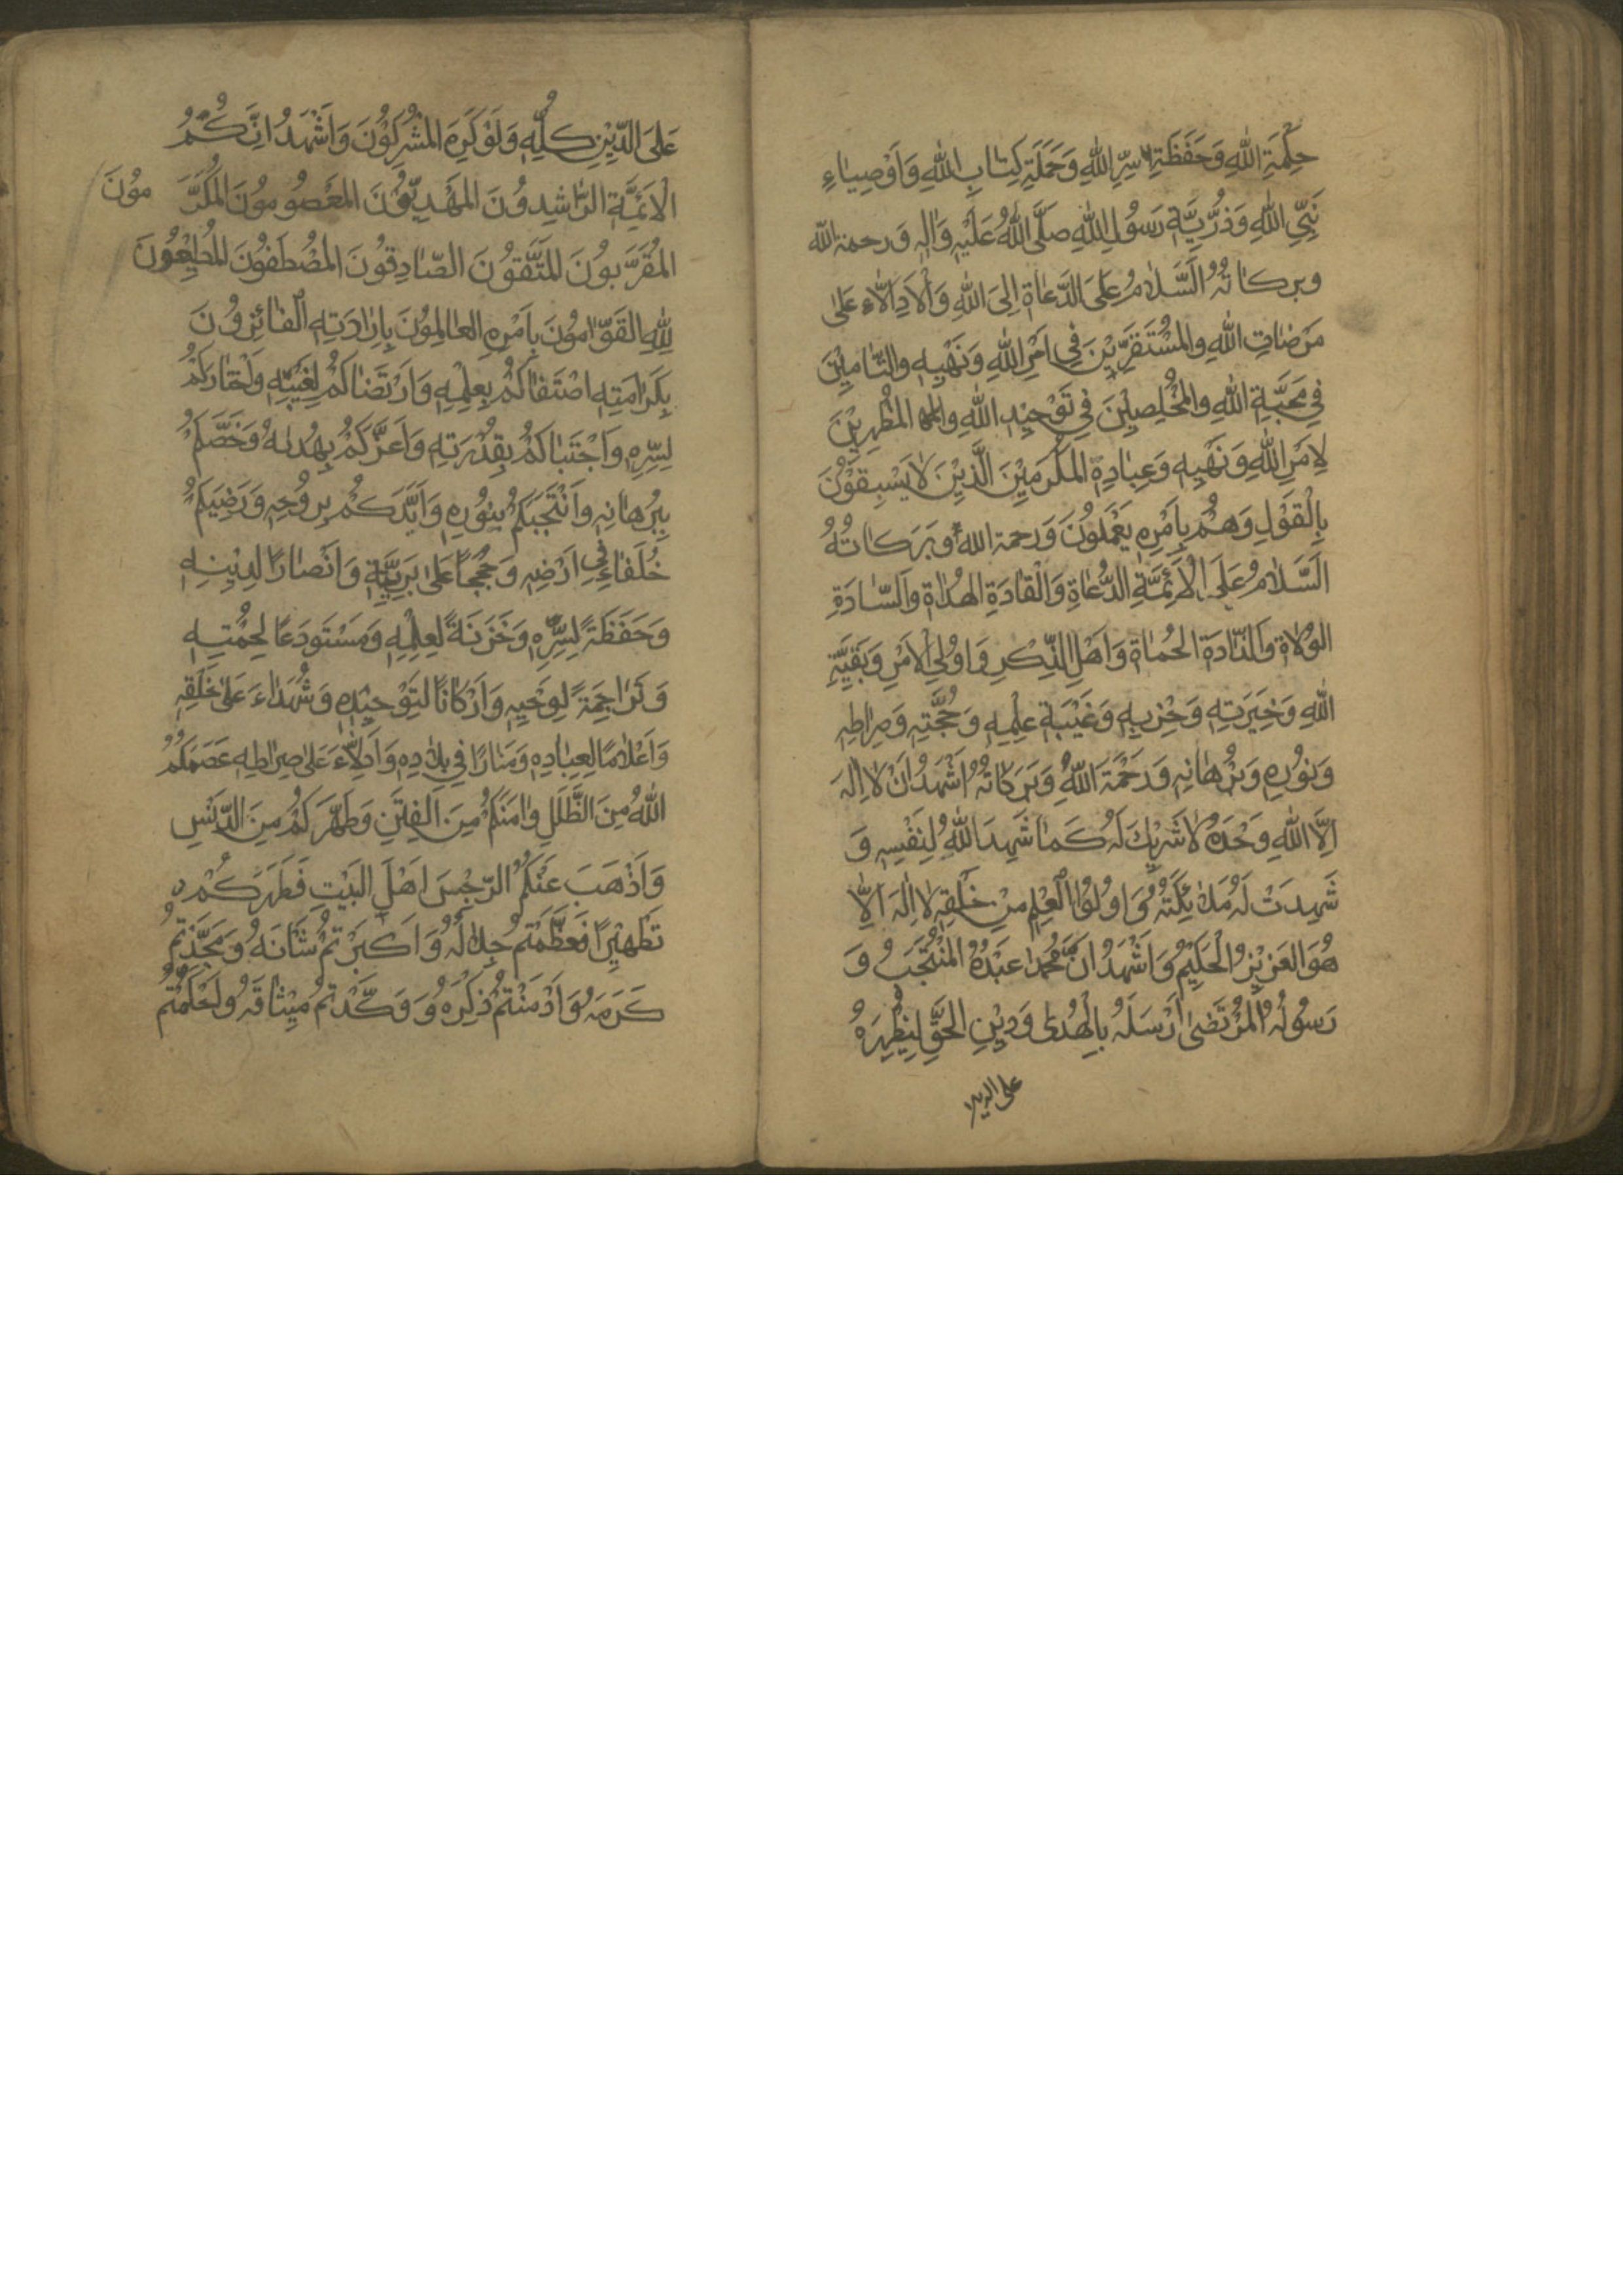 حِكْمَةِ اللهِ وَحَفَظَةِ سِرِّ اللهِ وَحَمَلَةِ كِتَابِ اللهِ وَاَوْصِيَاءِ
نَبِيِّ اللهِ وَذُرِّيَّةِ رَسُولِ اللهِ صَلَّى اللهُ عَلَيْهِ وَاٰلِهٖ وَرحمة الله
وبركاتُهُ اَلسَّلَامُ عَلَى الدَّعَاةِ اِلىَ اللهِ وَالْاَدِلَّاءِ عَلىٰ
مَرْضَاتِ اللهِ والمُسْتَقِرِّيْنَ فِي اَمْرِ اللهِ وَنَهْيِهٖ والتَّامِيْنَ
فِي مَحَبَّةِ اللهِ والمُخْلِصِيْنَ فِي تَوْحِيْدِ اللهِ والمُظْهِرِيْنَ
لِاَمْرِ اللهِ وَنَهْيِهٖ وَعِبَادِهِ المُكْرَمِيْنَ الَّذِيْنَ لَا يَسْبِقُوْنَ
بِالْقَوْلِ وَهُمْ بِاَمْرِهٖ يَعْمَلُونَ وَرحمة اللهِ وَبَرَكَاتُهُ
اَلسَّلَامُ عَلَى الْاَئِمَّةِ الدُّعَاةِ وَالْقَادَةِ الهُدَاةِ وَالسَّادَةِ
الوُلَاةِ وَالذَّادَةِ الحُمَاةِ وَاَهْلِ الذِّكْرِ وَاُولِي الْاَمْرِ وَبَقِيَّةِ
اللهِ وَخِيَرَتِهٖ وَحِزْبِهٖ وَعَيْبَةِ عِلْمِهٖ وَحُجَّتِهٖ وَصِرَاطِهٖ
وَنُوْرِهٖ وَبُرْهَانِهٖ وَرَحْمَةُ اللهِ وَبَرَكَاتُهُ اَشْهَدُ اَنْ لَا اِلٰهَ
اِلَّا اللهُ وَحْدَهُ لَا شَرِيْكَ لَهُ كَمَا شَهِدَ اللهُ لِنَفْسِهٖ وَ
شَهِدَتْ لَهُ مَلٰئِكَتُهُ وَاُولُوا الْعِلْمِ مِنْ خَلْقِهٖ لَا اِلٰهَ اِلَّا
هُوَ العَزِيْزُ الْحَكِيْمُ وَاَشْهَدُ اَنَّ مُحَمَّدًا عَبْدُهُ المُنْتَجَبُ وَ
رَسُولُهُ المُرْتَضىٰ اَرْسَلَهُ بِالْهُدىٰ وَدِيْنِ الحَقِّ لِيُظْهِرَهُ
على الدين
عَلَى الدِّيْنِ كُلِّهٖ وَلَوْ كَرِهَ المُشْرِكُوْنَ وَاَشْهَدُ اَنَّكُمُ
الْاَئِمَّةِ الرَّاشِدُونَ المَهْدِيُّوْنَ المَعْصُومُونَ المُكَرَّمُوْنَ
المُقَرَّبُونَ المُتَّقُونَ الصَّادِقُونَ المُصْطَفُوْنَ المُطِيْعُوْنَ
لِلّٰهِ القَوَّامُوْنَ بِاَمْرِهٖ العَامِلُوْنَ بِاِرَادَتِهٖ الْفَائِزُوْنَ
بِكَرَامَتِهٖ اصْتَفَاكُمْ بِعِلْمِهٖ وَارْتَضَاكُمْ لِغَيْبِهٖ وَاخْتَارَكُمْ
لِسِرِّهٖ وَاجْتَبَاكُمْ بِقُدْرَتِهٖ وَاَعَزَّكُمْ بِهُدٰىهُ وَخَصَّكُمْ
بِبُرْهَانِهٖ وَانْتَجَبَكُمْ بِنُوْرِهٖ وَاَيَّدَكُمْ بِرُوْحِهٖ وَرَضِيَكُمْ
خُلَفَاءَ فِي اَرْضِهٖ وَحُجَجًا عَلىٰ بَرِيَّتِهٖ وَاَنْصَارًا لِدِيْنِهٖ
وَحَفَظَةً لِسِرِّهٖ وَخَزَنَةً لِعِلْمِهٖ وَمُسْتَودَعًا لِحِكْمَتِهٖ
وَتَرَاجِمَةً لِوَحْيِهٖ وَاَرْكَانًا لِتَوْحِيْدِهٖ وَشُهَدَاءَ عَلىٰ خَلْقِهٖ
وَاَعْلَامًا لِعِبَادِهٖ وَمَنَارًا فِي بِلَادِهٖ وَاَدِلَّاءَ عَلىٰ صِرَاطِهٖ عَصَمَكُمُ
اللهُ مِنَ الظَّلَلِ وَاٰمَنَكُمْ مِنَ الْفِتَنِ وَطَهَّرَكُمْ مِنَ الدَّنَسِ
وَاَذْهَبَ عَنْكُمُ الرِّجْسَ اَهْلَ البَيْتِ فَطَهَّرَكُمْ
تَطْهِيْرًا فَعَظَّمْتُمْ جِلَالَهُ وَاَكْبَرْتُمْ شَانَهُ وَمَجَّدْتُمْ
كَرَمَهُ وَاَدْمَنْتُمْ ذِكْرَهُ وَوَكَّدْتُمْ مِيْثَاقَهُ وَاَحْكَمْتُمْ